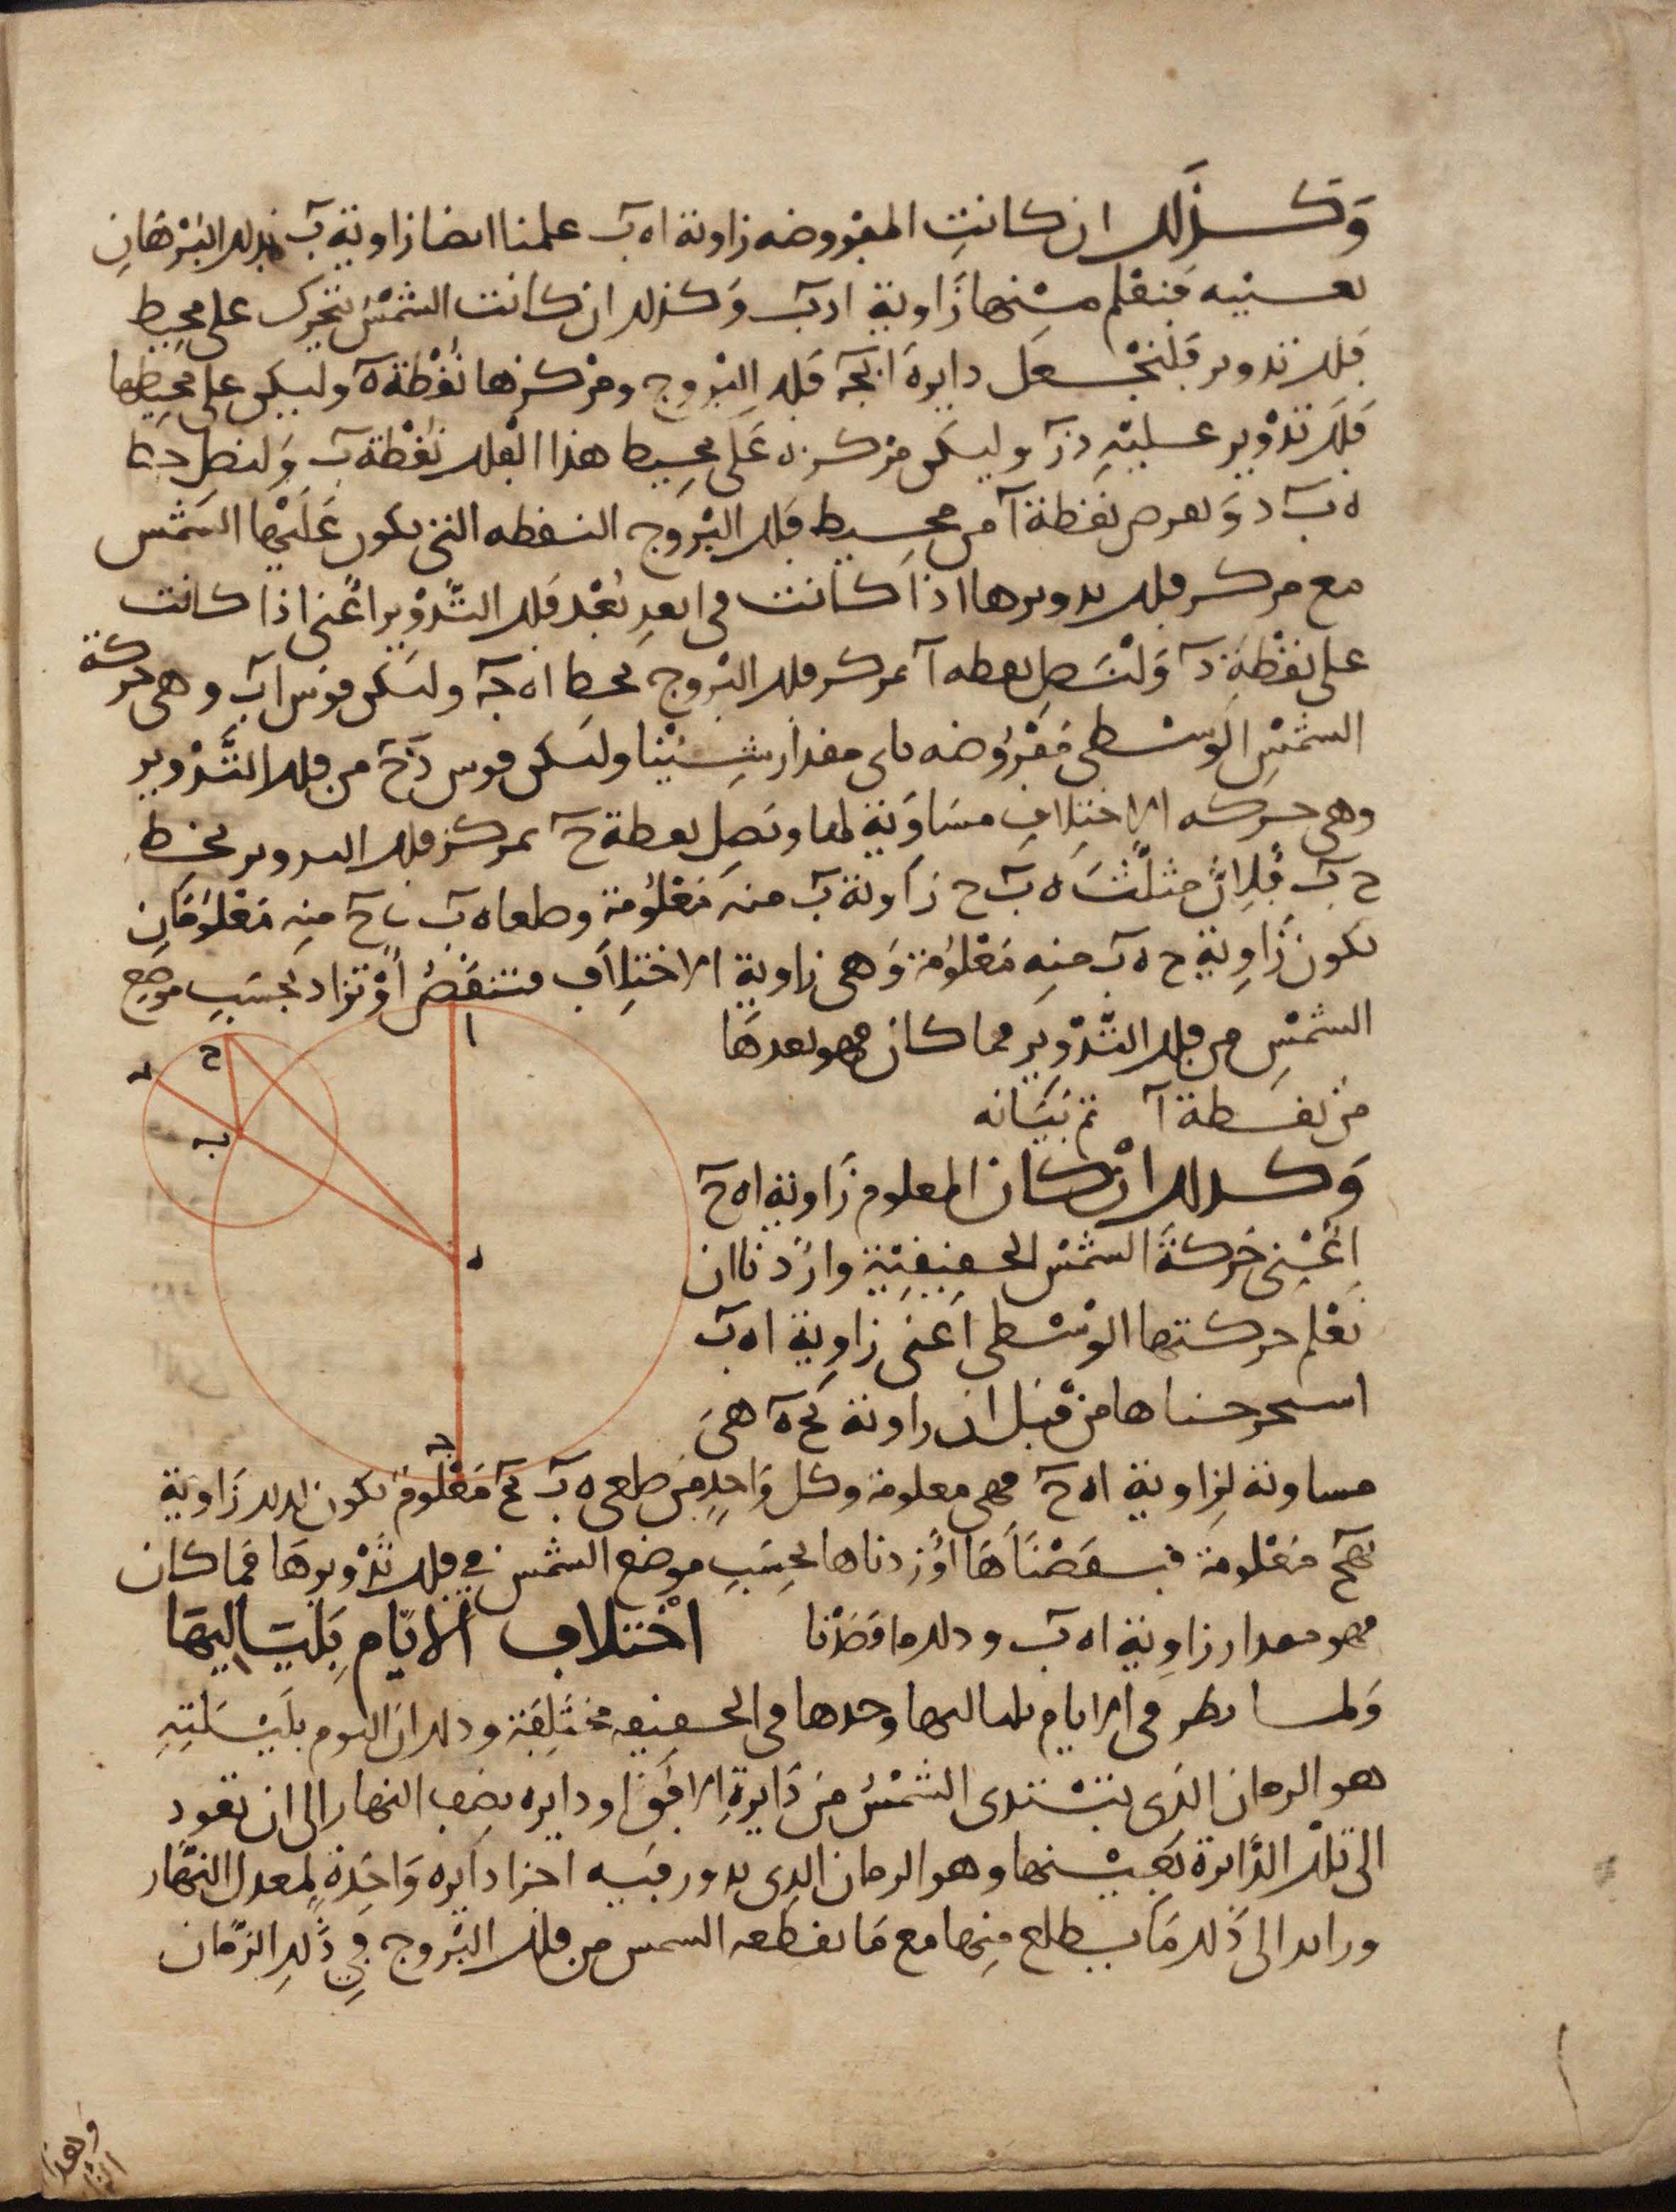 وكذلك ان كانت المفروضه زاوية اه ب علمنا ايضا زاوية ب بذلك البرهان
بعينه فنعلم منها زاوية ا د ب وكذلك ان كانت الشمس تتحرك على محيط
فلك تدوير فلنجعل دايرة ابج فلك البروج ومركزها نقطة ه وليكن على محيطها
فلك تدوير عليه دز وليكن مركزه على محيط هذا الفلك نقطة ب ولنصل خط
ه ب د ونفرض نقطة ا من محيط فلك البروج النقطه التى يكون عليها الشمس
مع مركز فلك تدويرها اذا كانت فى ابعد بعد فلك التدوير اعنى اذا كانت
على نقطة د ولنصل نقطه ا بمركز فلك البروج بخط اه ج وليكن قوس اب وهى حركة
الشمس الوسطى مفروضه باى مقدار شئنا وليكن قوس دح من فلك التدوير
وهى حركه الاختلاف مساوية لها ونصل نقطة ح بمركز فلك التدوير بخط
ح ب فلان مثلث ه ب ح زاوية ب منه معلومة وضلعا ه ب ب ح منه معلومان
يكون زاوية ح ه ب منه معلومة وهى زاوية الاختلاف فتنقص او تزاد بحسب موضع
الشمس من فلك التدوير فما كان فهو بعدها
من نقطة ا تم بيانه
وكذلك ان كان المعلوم زاوية اه ح
اعنى حركة الشمس الحقيقية واردنا ان
نعلم حركتها الوسطى اعنى زاوية اه ب
استخرجناها من قبل ان زاوية بح ه هى
مساوية لزاوية اه ح فهى معلومة وكل واحد من ضلعى ه ب بح معلوم يكون لذلك زاوية
بهح معلومة فنقصناها او زدناها بحسب موضع الشمس في فلك تدويرها فما كان
فهو مقدار زاوية اه ب وذلك ما قصدنا اختلاف الايام بلياليها
ولما نظر فى الايام بلياليها وجدها فى الحقيقه مختلفة وذلك ان اليوم بليلته
هو الزمان الذى تبتدى الشمس من دايرة الافق او دايره نصف النهار الى ان تعود
الى تلك الدايرة بعينها وهو الزمان الذى يدور فيه اجزا دايره واحدة لمعدل النهار
وزايد الى ذلك ما يطلع منها مع ما يقطعه الشمس من فلك البروج في ذلك الزمان
ا
ح
د
ب
ه
ج
وهذا